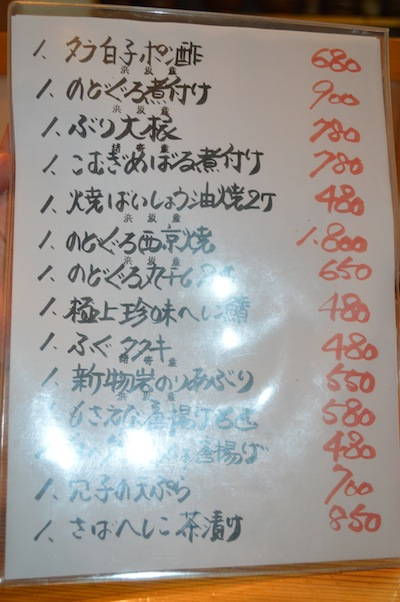 一、タラ白子ポン酢 680
浜坂産
一、のどぐろ煮付け 900
浜坂産
一、ぶり大根 780
一、こむぎめばる煮付け 780
一、焼ばいしょう油焼2ケ 480
浜坂産
一、のどぐろ西京焼 1.800
浜坂産
一、のどぐろ丸干し 650
一、極上珍味へしこ鯖 480
一、ふぐタタキ 480
一、新物岩のりあぶり 550
浜坂産
唐揚げ 580
唐揚げ 480
一、穴子の天ぷら 700
一、さばへしこ茶漬け 850